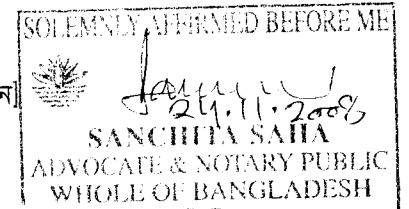 SOLEMNLY AFFIRMED BEFORE ME
ন]
24.11.2008
SANCHITA SAHA
ADVOCATE & NOTARY PUBLIC
WHOLE OF BANGLADESH